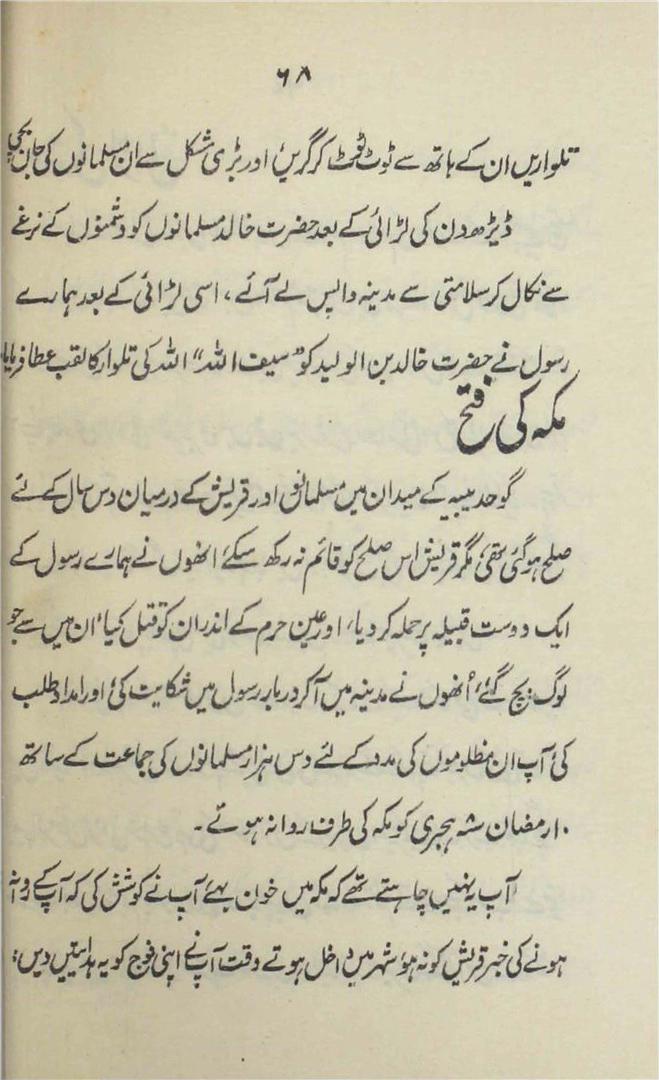 ۶۸
تلواریں ان کے ہاتھ سے ٹوٹ ٹوٹ کر گریں، اور بڑی مشکل سے ان مسلمانوں کی جان بچی،
ڈیڑھ دن کی لڑائی کے بعد حضرت خالد مسلمانوں کو دشمنوں کے نرغے
سے نکال کر سلامتی سے مدینہ واپس لے آئے، اسی لڑائی کے بعد ہمارے
رسول نے حضرت خالد بن الولید کو "سیف اللہ" اللہ کی تلوار کا لقب عطا فرمایا،
مکہ کی فتح
گو حدیبیہ کے میدان میں مسلمانوں اور قریش کے درمیان دس سال کے لئے
صلح ہو گئی تھی، مگر قریش اس صلح کو قائم نہ رکھ سکے، انھوں نے ہمارے رسول کے
ایک دوست قبیلہ پر حملہ کر دیا، اور عین حرم کے اندر ان کو قتل کیا، ان میں سے جو
لوگ بچ گئے، اُنھوں نے مدینہ میں آکر دربار رسول میں شکایت کی، اور امداد طلب
کی، آپ ان مظلوموں کی مدد کے لئے دس ہزار مسلمانوں کی جماعت کے ساتھ
۱۰ رمضان ۸ھ ہجری کو مکہ کی طرف روانہ ہوئے۔
آپ یہ نہیں چاہتے تھے کہ مکہ میں خون بہے، آپ نے کوشش کی کہ آپ کے روانہ
ہونے کی خبر قریش کو نہ ہو، شہر میں داخل ہوتے وقت آپ نے اپنی فوج کو یہ ہدایتیں دیں: